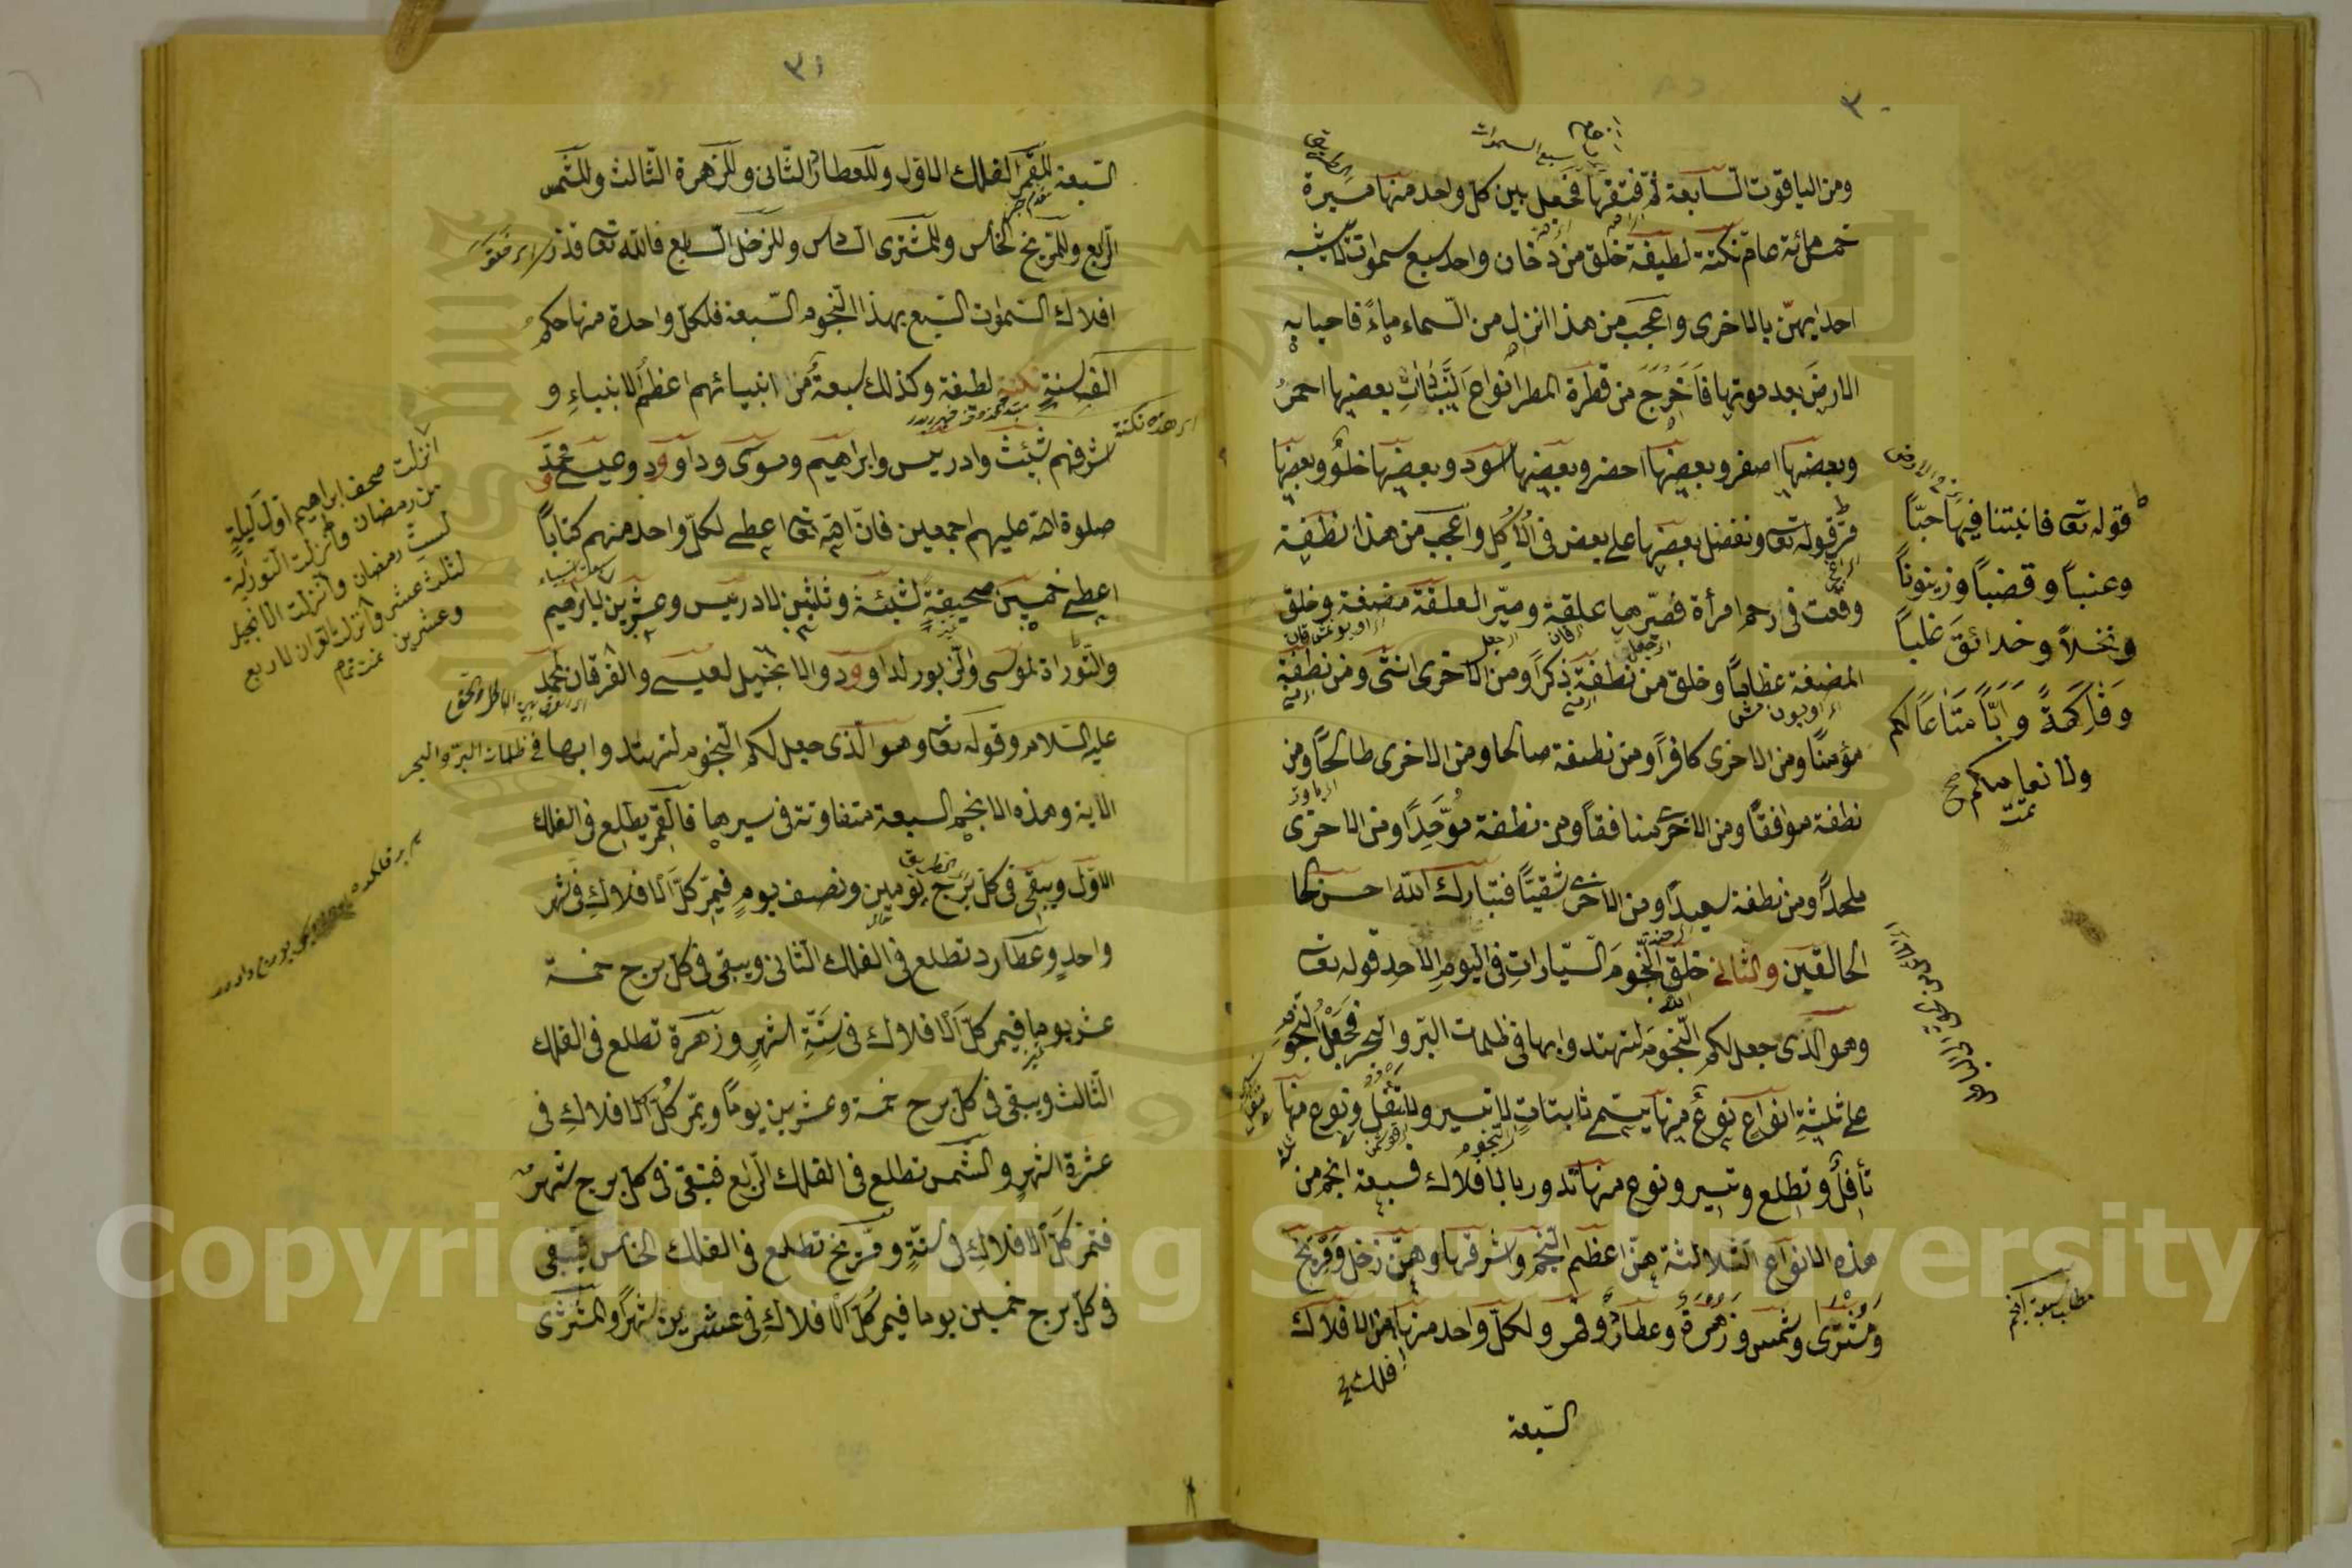 ٣٠
ومن الياقوت السابعة ثم فتقها فجعل بين كل واحد منها مسيرة
خمسمائة عام نكتة لطيفة خلق من دخان واحد سبع سموات لا تشبه
احديهن بالاخرى واعجب من هذا انزل من السماء ماءً فاحيا به
الارض بعد موتها فاَخرَجَ من قطرة المطر انواع النَّباتِ بعضها احمرُ
وبعضها اصفر وبعضها اخضر وبعضها اسود وبعضها حلوٌ وبعضها
مرّ قوله تعا ونفضل بعضها على بعض فى الاُكُل واعجب من هذا نطفة
وقعت فى رحم امرأة فصيّرها علقة وصيّر العلقة مضغة وخلق
المضغة عظاماً وخلق من نطفة ذكراً ومن الاخرى انثى ومن نطفة
مؤمناً ومن الاخرى كافراً ومن نطفة صالحا ومن الاخرى طالحاً ومن
نطفة موافقاً ومن الاخرى منافقاً ومن نطفة موَّحِداً ومن الاخرى
ملحداً ومن نطفة سعيداً ومن الاخرى شقيّاً فتبارك الله احسن الخا
الخالقين والثانى خلق النّجومَ السّيّاراتِ فى اليومِ الاحد قوله تعا
وهو الذى جعل لكم النّجومَ لتهتدوا بها فى ظلمات البرّ والبحر فجَعَلَ النّجومَ
على ثلثةِ انواع نوعٌ منها يسمى ثابتاتٍ لا تسير ولا تنقل ونوع منها
تأفِلُ وتطلع وتسير ونوع منها تدور بالافلاك فسبعة انجم من
هذه الانواع الثلاثة هنّ اعظم النجم واشرفها وهنّ زحل ومريخ
ومشترى وشمس وزهرة وعطارد وقمر ولكلّ واحد منها من الافلاك
السّبعة
قوله تعا فانبتنا فيها حبّاً
وعنباً وقضباً وزيتوناً
ونخلاً وحدائقَ غلباً
وَفاكِهَةً وَاَبّاً مَتاعاً لكم
ولانعامكم
تمت
مطلب سبعة انجم
٣١
السّبعة للقمر الفلك الاوّل وللعطارد الثّانى وللزهرة الثّالث وللشّمس
الرّابع وللمريخ الخامس وللمشترى السّادس وللزحل السّابع فالله تعا قدّر
افلاك السّموات السّبع بهذا النّجوم السّبعة فلكلّ واحدة منها حكم
الف سنةٍ نكتة لطيفة وكذلك سبعةٌ من انبيائهم اعظمُ الانبياءِ و
اشرفهم شيث وادريس وابراهيم وموسى وداوود وعيسى ومحمّد
صلوة الله عليهم اجمعين فانّ الله تعا اعطى لكلّ واحد منهم كتاباً
اعطى خمسين صحيفةٍ لشيث وثلثين لادريس وعشرين لابراهيم
والتّوراة لموسى والزبور لداوود والانجيل لعيسى والفرقان لمحمد
عليه السّلام وقوله تعا وهو الّذى جعل لكم النّجوم لتهتدوا بها فى ظلمات البرّ والبحر
الاية وهذه الانجم السبعة متفاوتة فى سيرها فالقمر يطلع فى الفلك
الاوّل ويبقى فى كلّ برج يومين ونصف يومٍ فيمرّ كلّ الافلاكِ فى شهر
واحدٍ وعطارد تطلع فى الفلك الثّانى ويبقى فى كلّ برج خمسة
عشر يوما فيمر كلّ الافلاك فى ستّةِ اشهرٍ وزهرة تطلع فى الفلك
الثّالث ويبقى فى كلّ برج خمسة وعشرين يوماً ويمّر كُلّ الافلاكِ فى
عشرة اشهرٍ والشّمس تطلع فى الفلك الرّابع فتبقى فى كلّ برج شهر
فتمرّ كلّ الافلاكِ فى سنةٍ ومريخ تطلع فى الفلك الخامس فيبقى
فى كلّ برج خمسين يوما فيمر كُلّ الافلاكِ فى عشرين شهراً والمشترى
اى هذه نكتة
انزلت صحف ابراهيم اوّل ليلةٍ
من رمضان وانزلت التورية
لستّ رمضان وانزلت الانجيل
لثلث عشر وانزلت القرآن لاربع
وعشرين تمت تم
Copyright © King Saud University